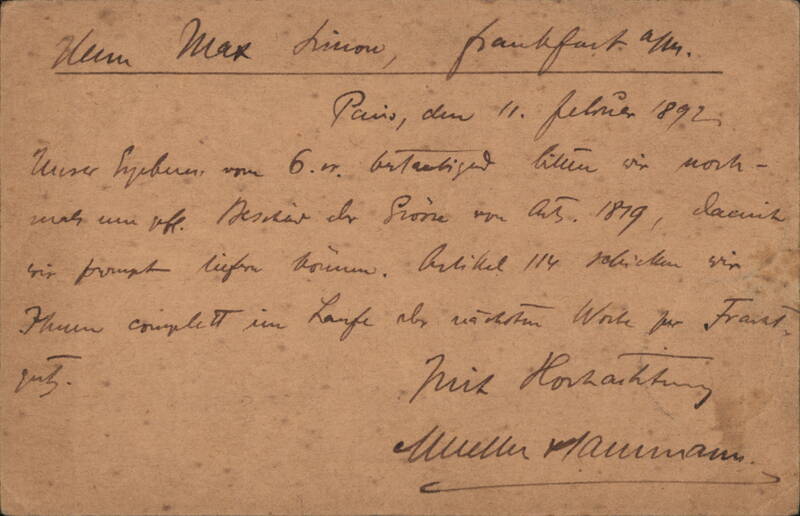 Herrn Max Simon, Frankfurt a/M.
Paris, den 11. Februar 1892
Unser Ergebenes vom 6. cr. bestaetigend bitten wir noch-
mals um gfl. Bescheid der Grösse von Art. 1819, damit
wir prompt liefern können. Artikel 114 schicken wir
Ihnen complett im Laufe der nächsten Woche per Fracht-
gut.
Mit Hochachtung
Mueller